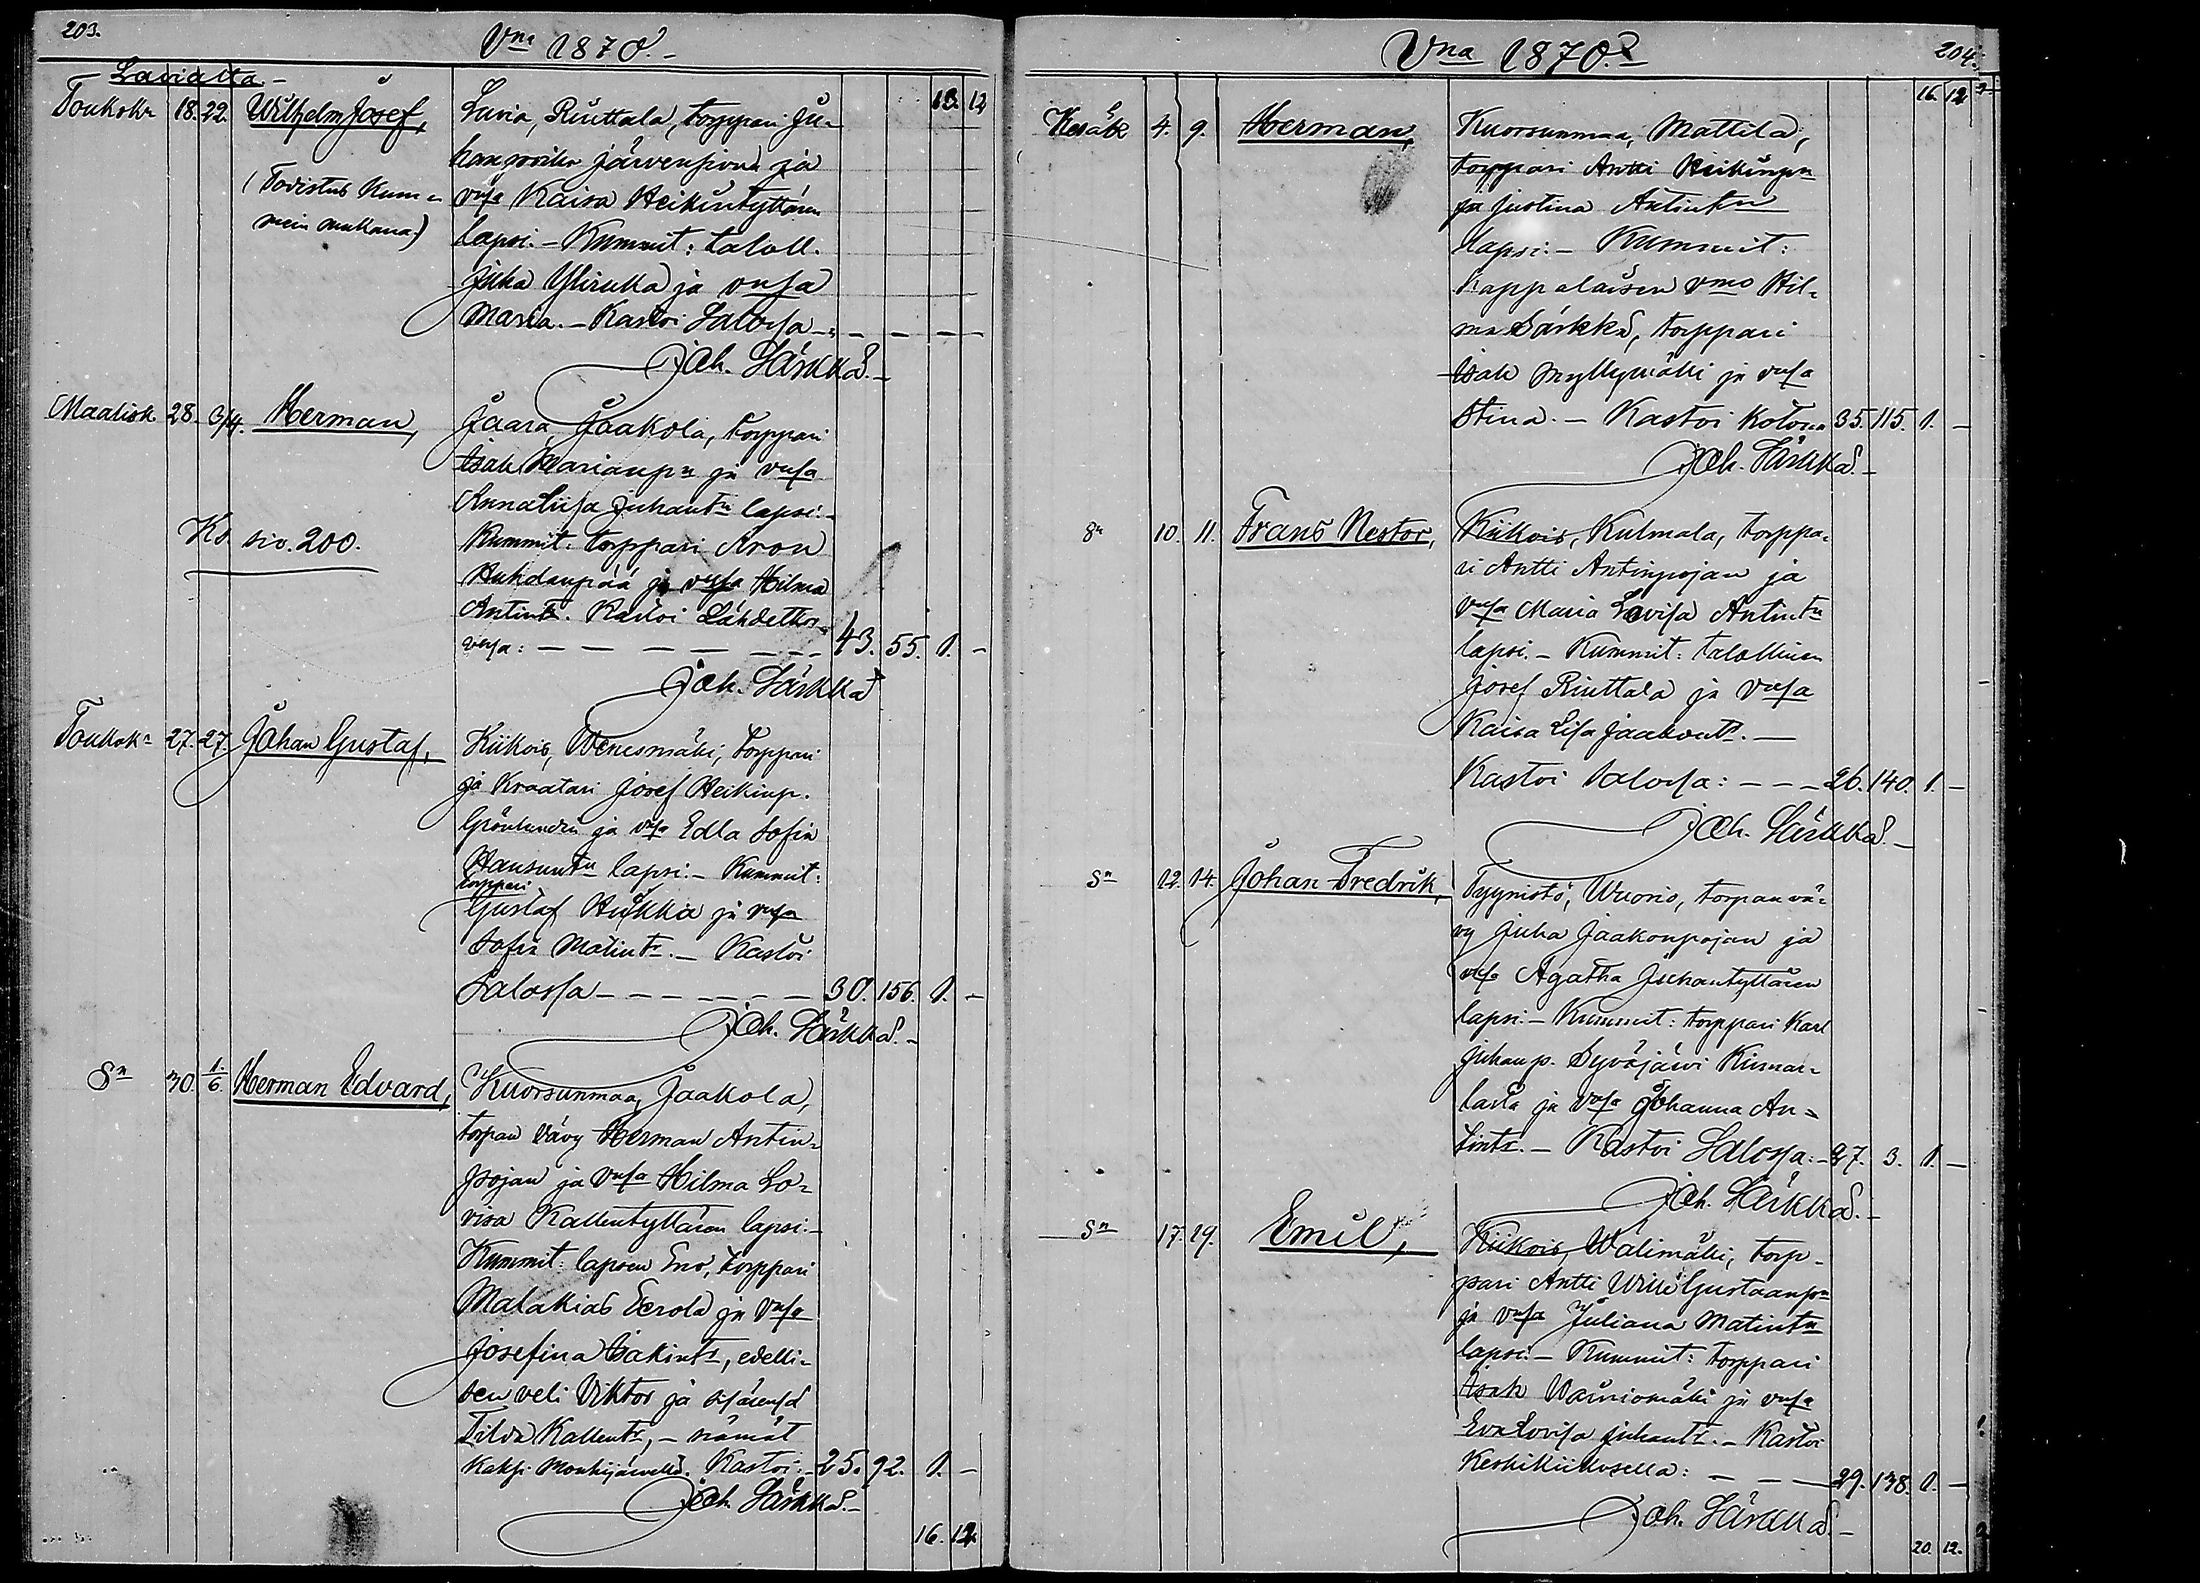 203.
Vna 1870.-
Laviasta.-
13. 12
Toukok. 18. 22. Wilhelm Josef, Lavia, Riuttala, torppari Ju-
hanpoika Järvensivun ja
(Todistus Kum-
mein mukana.)
vmsa Kaisa Heikintyttären
lapsi. - Kummit: taloll.
Juha Yliruka ja vmsa
Maria. - Kastoi Salossa - - - -
Joh. Särkkä.-
Maalisk. 28. 3/4. Herman, Jaara, Jaakola, torppari
Isak Marianpn ja vmsa
Annaliisa Juhantn lapsi.-
Ks. siv. 200.
Kummit: torppari Aron
Huhdanpää ja vmsa Hilma
Antintr. Kastoi Lähdetkor-
vessa: - - - - - - 43. 55. 1. -
Joh. Särkkä
Toukok. 27. 27. Johan Gustaf, Kiikois, Wenesmäki, torppari
ja Kraatari Josef Heikinp.
Grönlundin ja vmsa Edla Sofia
Hansuntn lapsi. - Kummit:
torppari
Gustaf Hukkia ja vmsa
Sofia Matintr. - Kastoi
Salossa - - - - - - 30. 156. 1. -
Joh. Särkkä.-
Sn 30. 1/6. Herman Edvard, Kuorsunmaa, Jaakola,
torpan vävy Herman Antin-
pojan ja vmsa Hilma Lo-
visa Kallentyttären lapsi.-
Kummit: lapsen Eno, torppari
Malakias Eerola ja vmsa
Josefina Isakintr, edelli-
sen veli Viktor ja sisärensä
Tilda Kallentr, - nämät
kaksi Mouhijärveltä. Kastoi:- 25. 92. 1. -
Joh. Särkkä.-
16. 12.
Vna 1870.
204.
16. 12
Kesäk. 4. 9. Herman, Kuorsunmaa, Mattila,
torppari Antti Heikinpn
ja Justina Antintn
lapsi. - Kummit:
Kappalaisen vmo Hil-
ma Särkkä, torppari
Isak Myllymäki ja vmsa
Stina. - Kastoi kotona 35. 115. 1. -
Joh. Särkkä.-
Sn 10. 11. Frans Nestor, Kiikois, Kulmala, torppa-
ri Antti Antinpojan ja
vmsa Maria Lovisa Antintn
lapsi. - Kummit: talollinen
Josef Riuttala ja vmsa
Kaisa Lisa Jaakontr. -
Kastoi Salossa: - - - 26. 140. 1. -
Joh. Särkkä.-
Sn 12. 14. Johan Fredrik, Tyynistö, Wuorio, torpan vä-
vy Juha Jaakonpojan ja
vmsa Agatha Juhantyttären
lapsi. - Kummit: torppari Karl
Juhanp. Syväjärvi Kirmas-
lasta ja vmsa Johanna An-
tintr. - Kastoi Salossa:- 27. 3. 1. -
Joh. Särkkä.-
Sn 17. 19. Emil, Kiikois, Wälimäki, torp-
pari Antti Wille Gustaanpn
ja vmsa Juliana Matintn
lapsi. - Kummit: torppari
Isak Wainiomäki ja vmsa
Eva Lovisa Juhantr. - Kastoi
Keskikiikosella: - - - 29. 138. 1. -
Joh. Särkkä.-
20. 12.